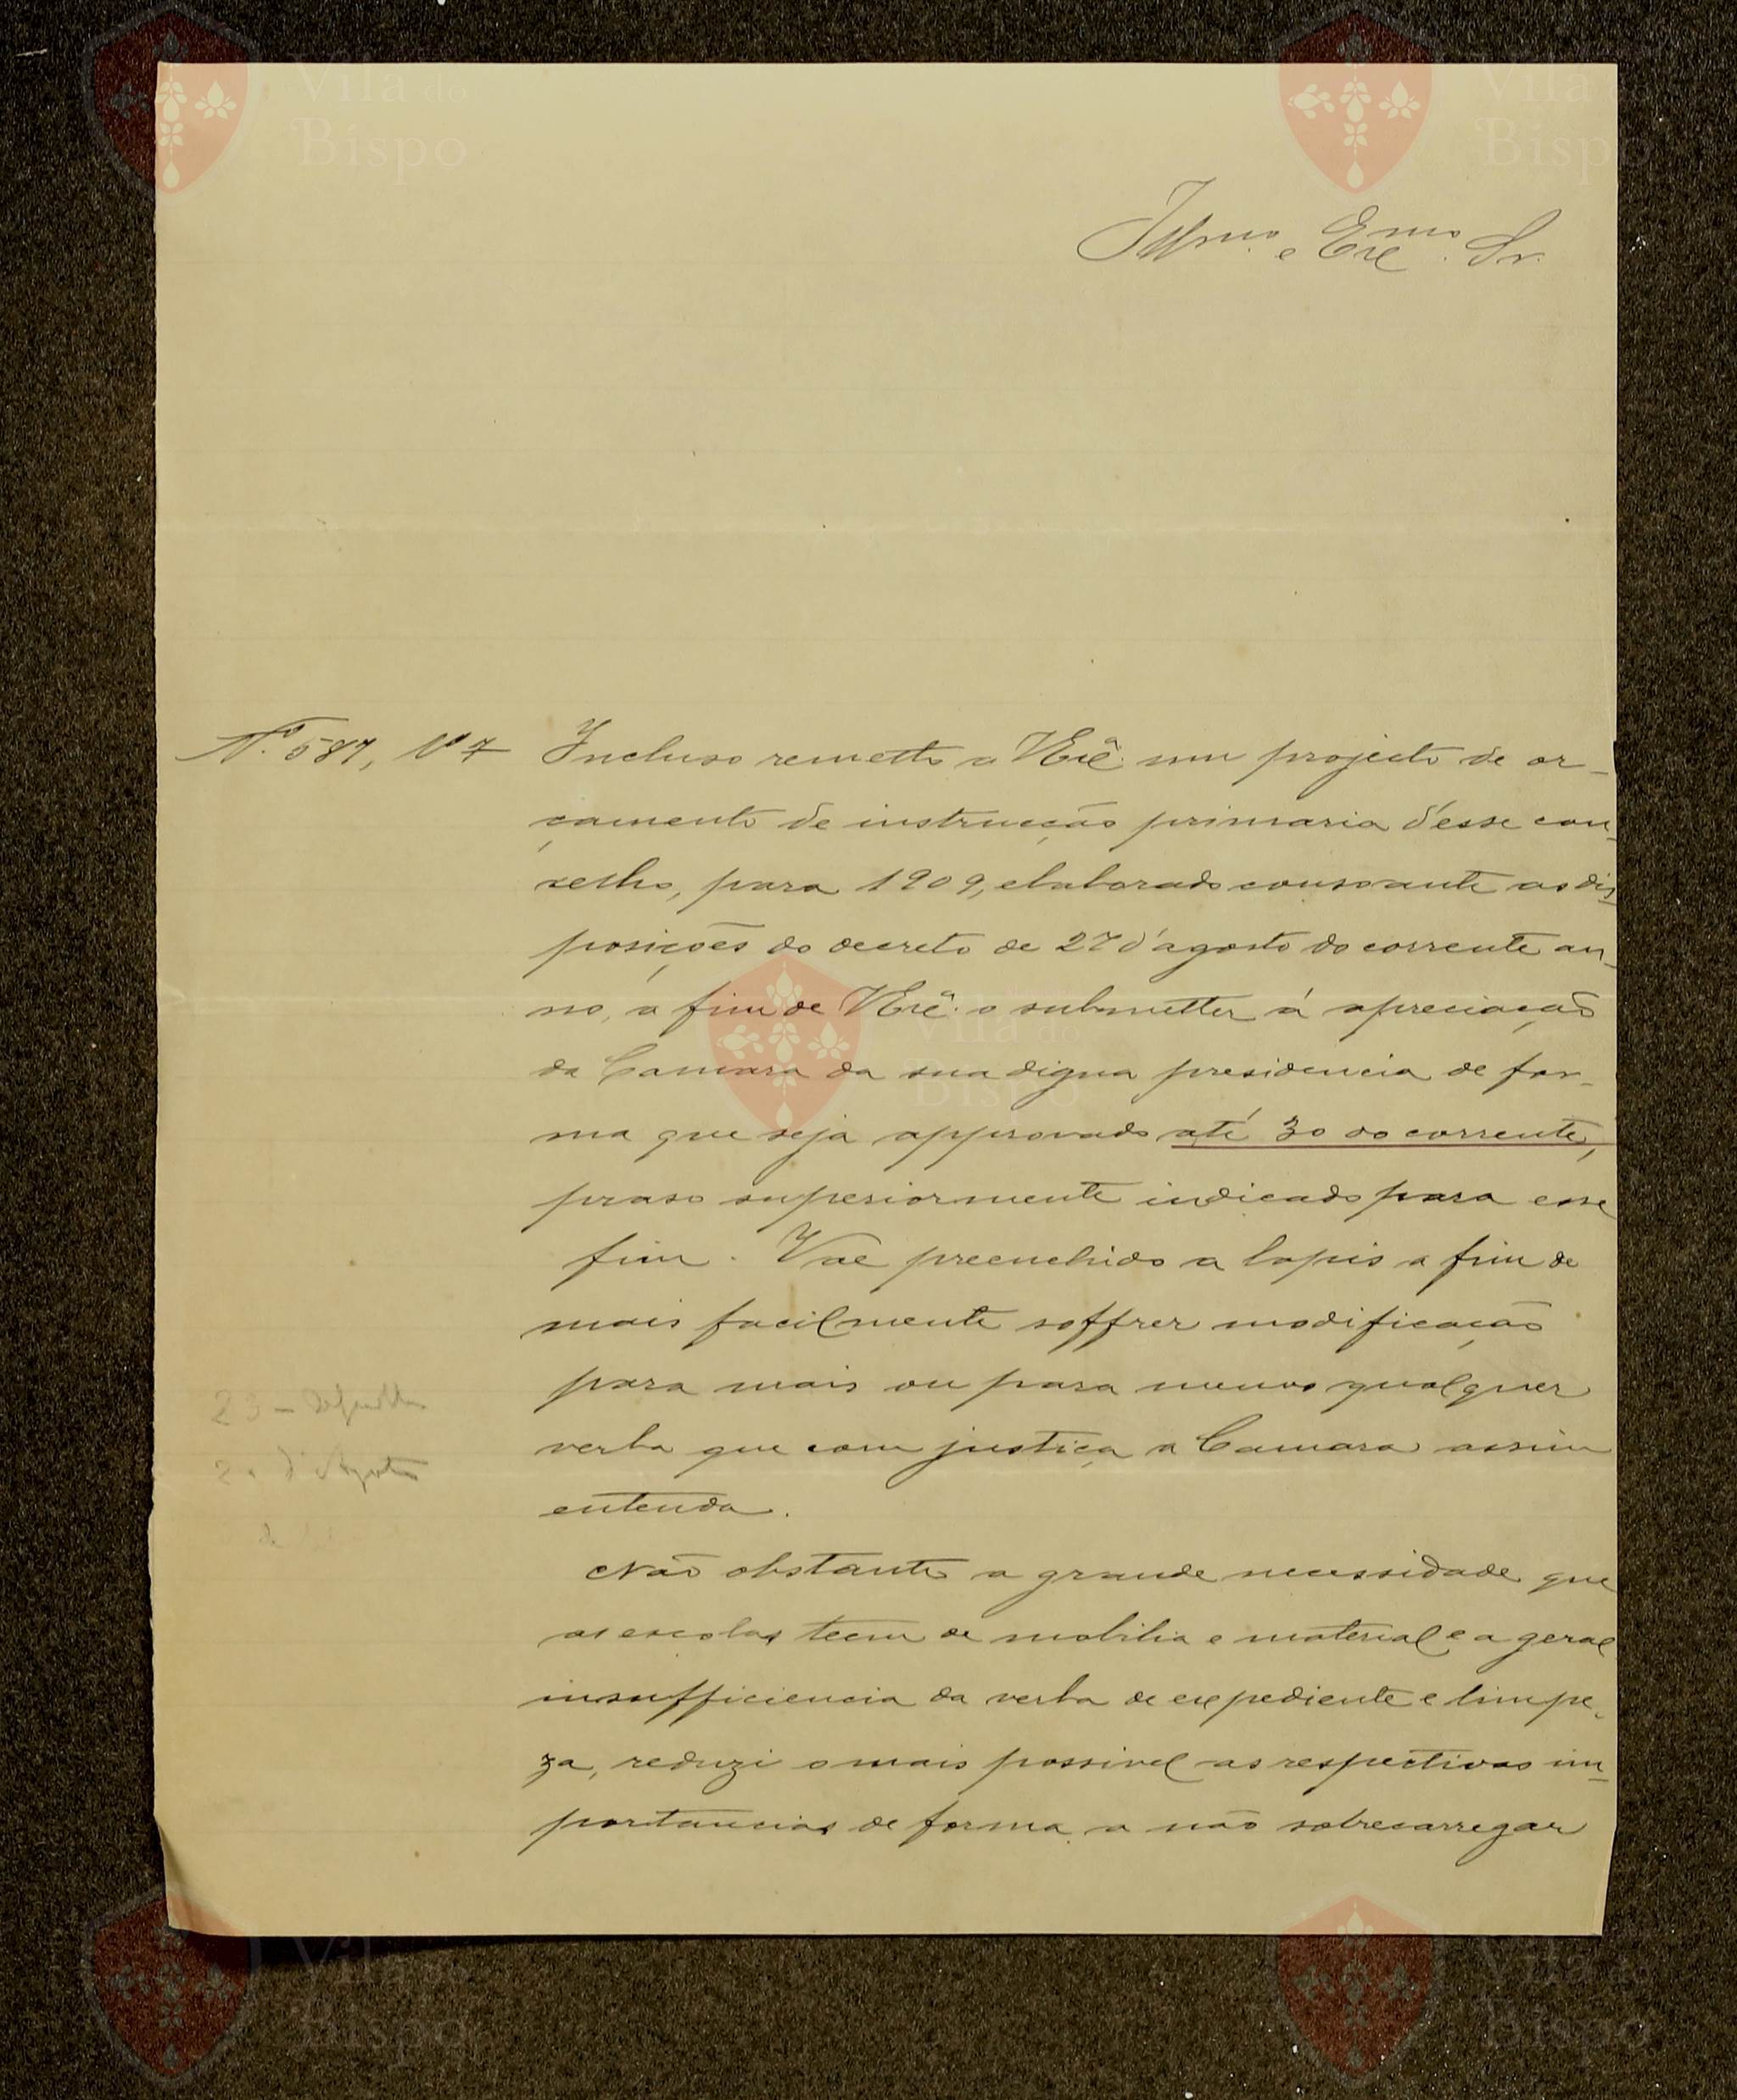 Illmo. e Exmo. Sr.
N.º 587, Nº 7
Incluso remetto a VExª. um projecto de or-
çamento de instrucção primaria d'esse con-
selho, para 1909, elaborado consoante as dis-
posições do decreto de 27 d'agosto do corrente an-
no, a fim de VExª. o submetter á apreciação
da Camara da sua digna presidencia de for-
ma que seja approvado até 30 do corrente,
praso superiormente indicado para esse
fim. Vae preenchido a lapis a fim de
mais facilmente soffrer modificação
para mais ou para menos qualquer
verba que com justiça a Camara assim
entenda.
Não obstante a grande necessidade que
as escolas teem de mobilia e material e a geral
insufficiencia da verba de expediente e limpe-
za, reduzi o mais possivel as respectivas im-
portancias de forma a não sobrecarregar
23 -
d'Agosto
de
Vila do
Bispo
Vila
Bispo
Vila do
Bispo
Vila do
Bispo
Vila do
Bispo